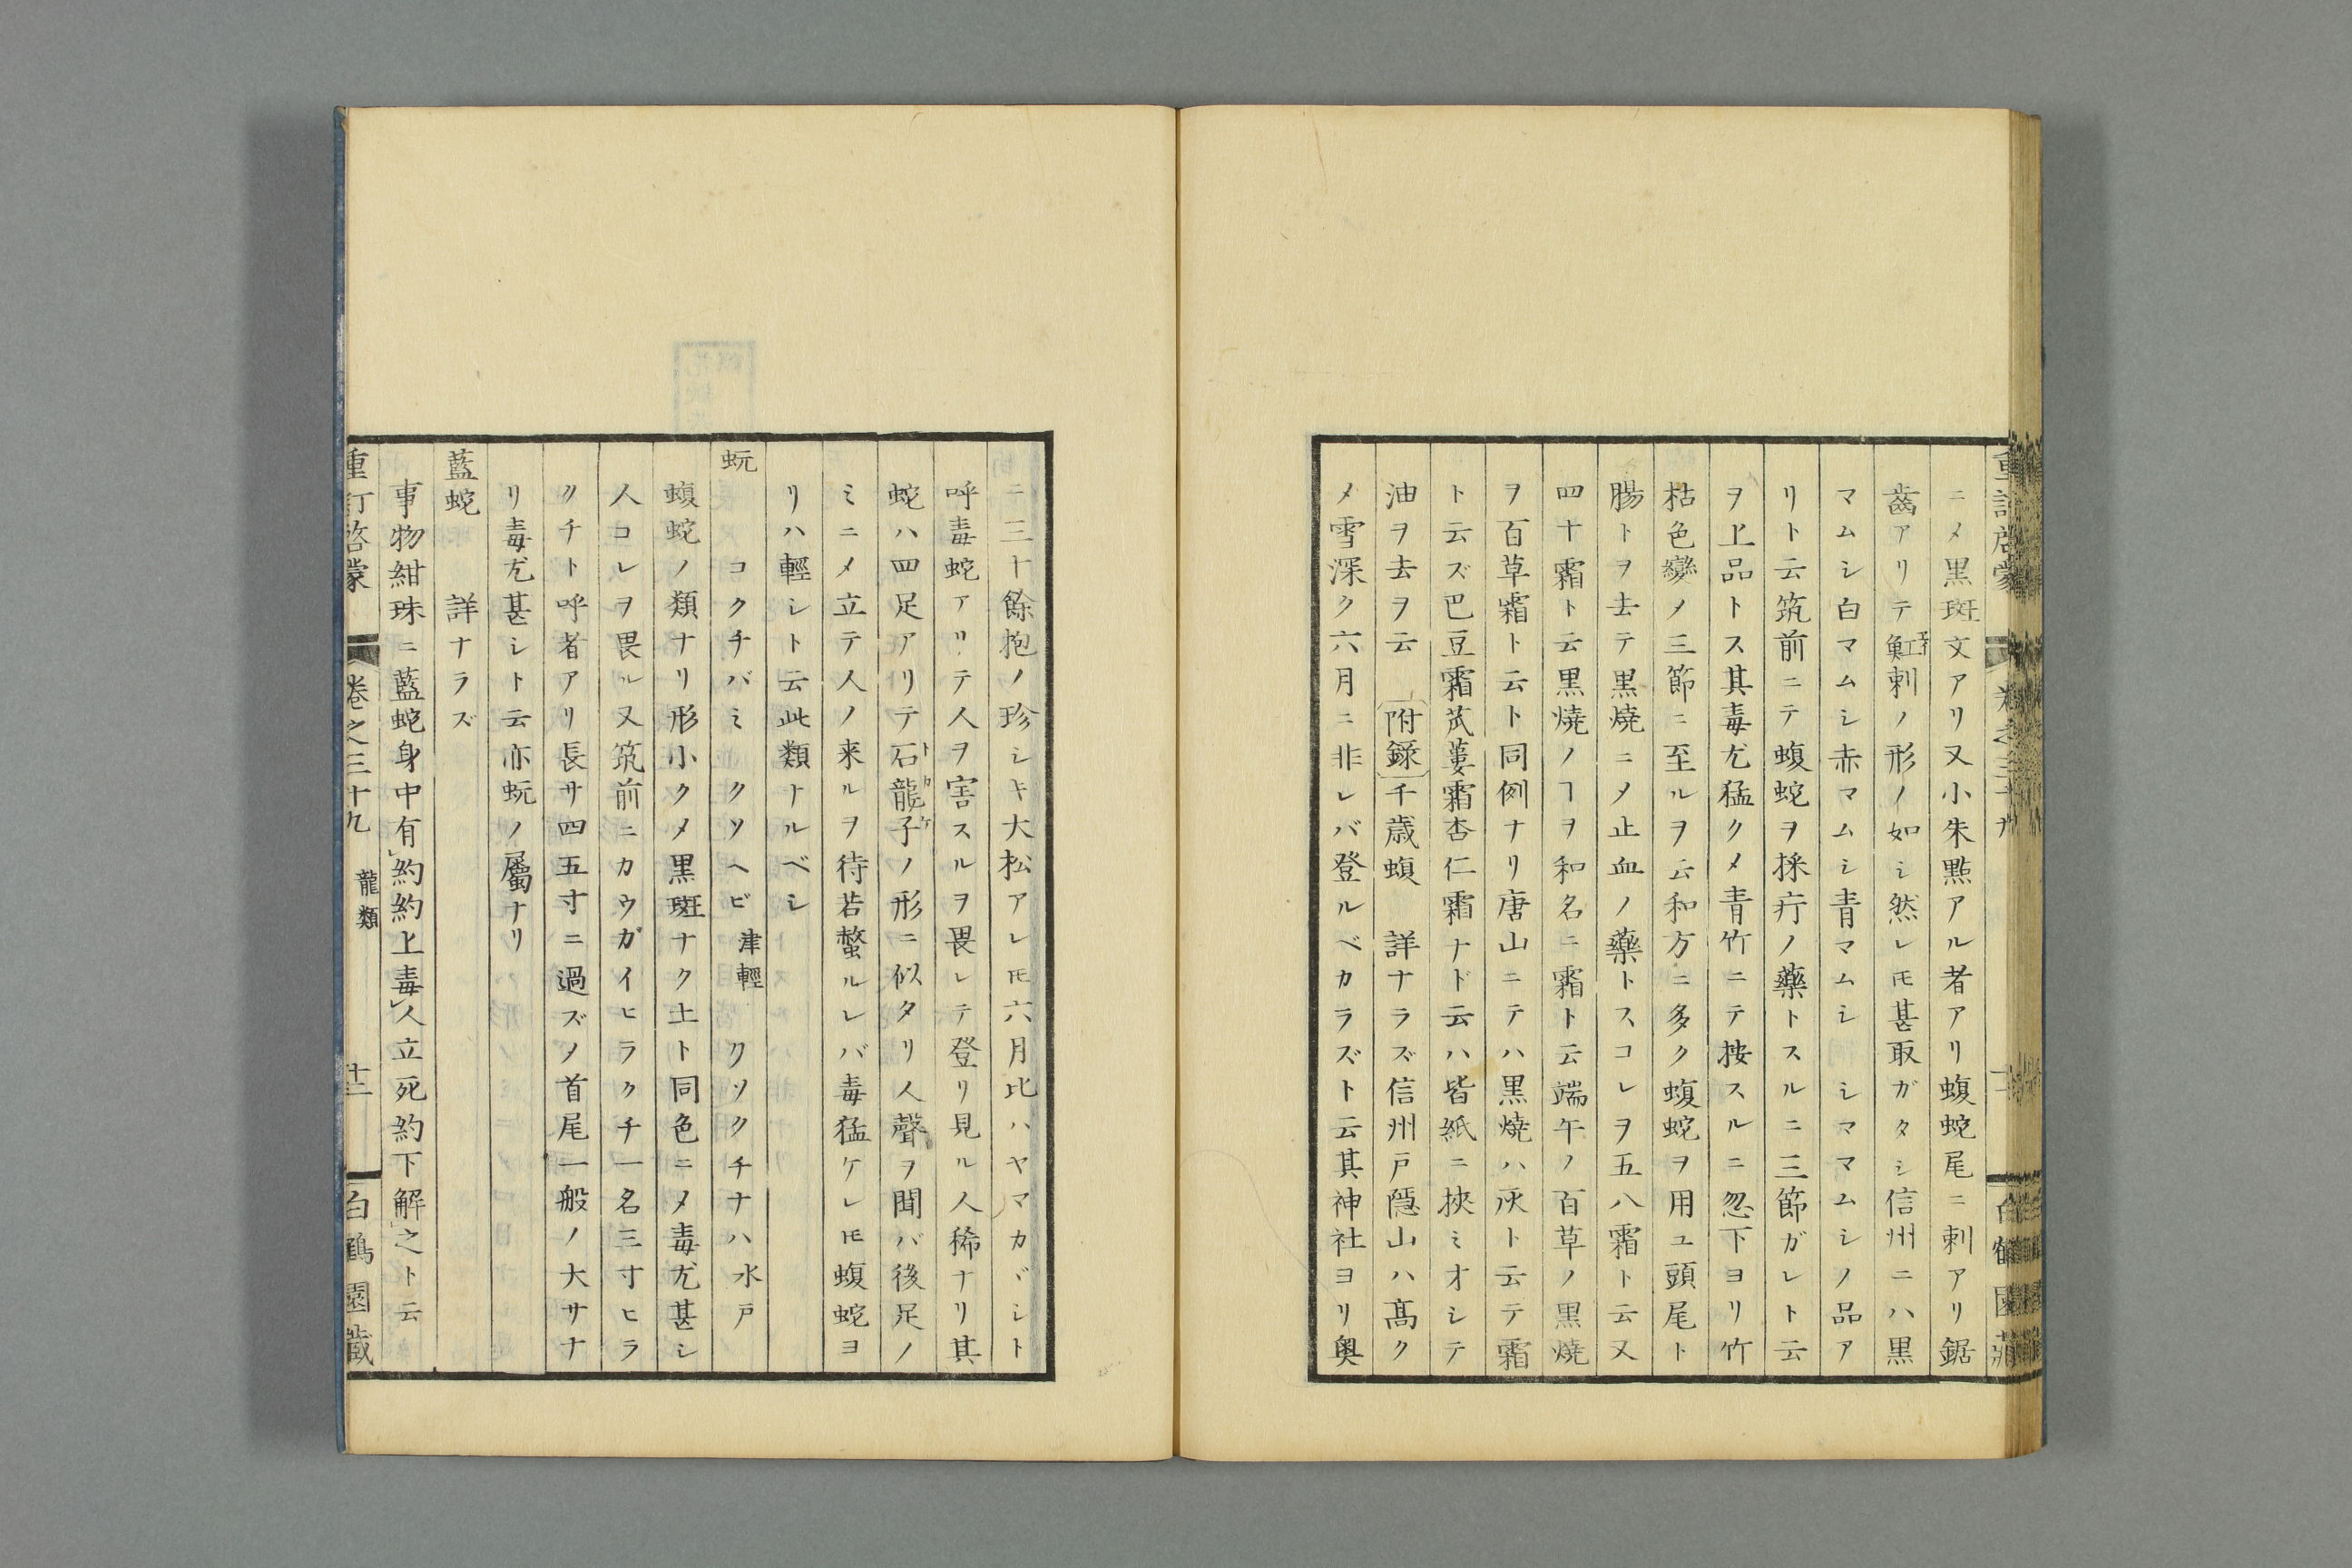 ニメ黒斑文アリ又小朱㸃アル者アリ蝮蛇尾ニ刺アリ鋸
齒アリテ魟刺ノ形ノ如シ然レ𪜈甚取ガタシ信州ニハ黒
マムシ白マムシ赤マムシ青マムシ シママムシノ品ア
リト云筑前ニテ蝮蛇ヲ採疔ノ藥トスルニ三節ガレト云
ヲ上品トス其毒尤猛クメ青竹ニテ按スルニ忽下ヨリ竹
枯色變メ三節ニ至ルヲ云和方ニ多ク蝮蛇ヲ用ユ頭尾ト
腸トヲ去テ黒燒ニメ止血ノ藥トスコレヲ五八霜ト云又
四十霜ト云黒燒ノヿヲ和名ニ霜ト云端午ノ百草ノ黒燒
ヲ百草霜ト云ト同例ナリ唐山ニテハ黒燒ハ灰ト云テ霜
ト云ズ巴豆霜苽蔞霜杏仁霜ナド云ハ皆紙ニ挾ミオシテ
油ヲ去ヲ云 附録 千歳蝮 詳ナラズ信州戸隱山ハ髙ク
メ雪深ク六月ニ非レバ登ルベカラズト云其神社ヨリ奥
ニ三十餘抱ノ珍シキ大松アレ𪜈六月比ハヤマカヾシト
呼毒蛇アリテ人ヲ害スルヲ畏レテ登リ見ル人稀ナリ其
蛇ハ四足アリテ石龍子トカケノ形ニ似タリ人聲ヲ聞バ後足ノ
ミニメ立テ人ノ来ルヲ待若螫ルレバ毒猛ケレ𪜈蝮蛇ヨ
リハ輕シト云此類ナルベシ
蚖 コクチバミ クソヘビ津輕 クソクチナハ水戸
蝮蛇ノ類ナリ形小クメ黒斑ナク土ト同色ニメ毒尤甚シ
人コレヲ畏ル又筑前ニカウガイヒラクチ一名三寸ヒラ
クチト呼者アリ長サ四五寸ニ過ズメ首尾一般ノ大サナ
リ毒尤甚シト云亦蚖ノ屬ナリ
藍蛇 詳ナラズ
事物紺珠ニ藍蛇身中有約約上毒人立死約下解之ト云
重訂啓蒙 卷之三十九 龍類 十二 白鶴園藏